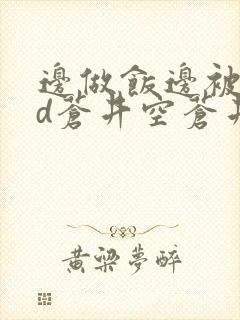 邊做飯邊被
d蒼井空蒼井
黃梁夢醉